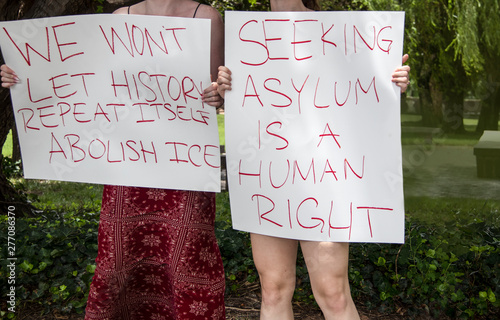 WE WON'T
LET HISTORY
REPEAT ITSELF
ABOLISH ICE
SEEKING
ASYLUM
IS A
HUMAN
RIGHT
© 277086370